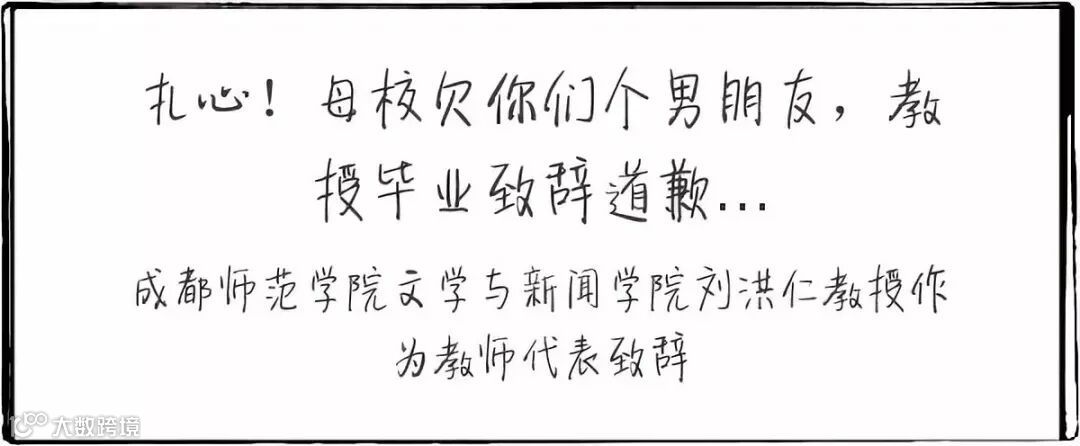 扎心！母校欠你们个男朋友，教
授毕业致辞道歉...
成都师范学院文学与新闻学院刘洪仁教授作
为教师代表致辞
大数跨境